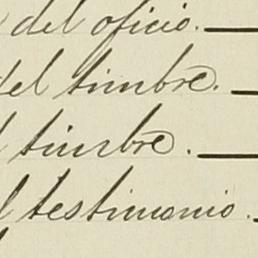 del oficio.
del timbre.
l timbre.
l testimonio.